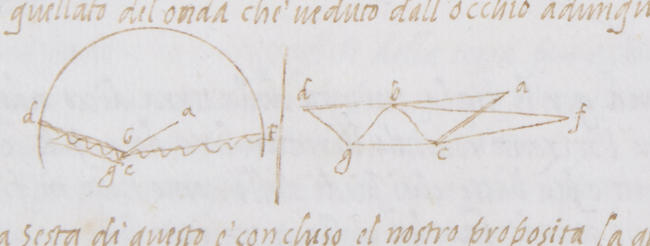 quellato del onda che veduto dall occhio adunqu
d b a f g c
d b a f g c
a sesta di questo e concluso el nostro proposito la q